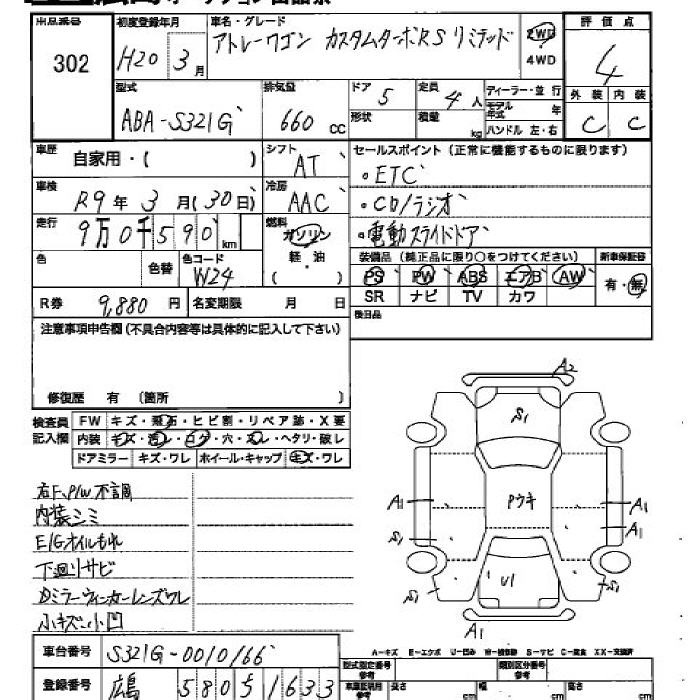 出品番号 302
初度登録年月 H20年 3月
車名・グレード アトレーワゴン カスタムターボRS リミテッド
2WD
4WD
評価点 4
外装 内装
C C
型式 ABA-S321G
排気量 660 cc
ドア 5
形状
定員 4人
積量 kg
ディーラー・並行
モデル年式 年
ハンドル 左・右
車歴 自家用・( )
シフト AT
車検 R9年 3月(30日)
冷房 AAC
走行 9万0千590km
燃料 ガソリン
軽・油
( )
色 色替 色コード W24
R券 9,880円 名変期限 月 日
セールスポイント(正常に機能するものに限ります)
。ETC
。CD/ラジオ
。電動スライドドア
装備品(純正品に限り○をつけてください) 新車保証書
PS PW ABS エアB AW 有・無
SR ナビ TV カワ
後日品
注意事項申告欄(不具合内容等は具体的に記入して下さい)
修復歴 有 (箇所 )
検査員記入欄
FW キズ・飛石・ヒビ割・リペア跡・X要
内装 キズ・汚レ・コゲ・穴・スレ・ヘタリ・破レ
ドアミラー キズ・ワレ ホイール・キャップ キズ・ワレ
右F、P/W不調
内装シミ
E/Gオイルもれ
下廻りサビ
Dミラーウィンカーレンズワレ
小キズ・小凹
A2
S1
A1
Pウキ
A1
A1
S1
U1
S1
S1
A1
A-キズ E-エクボ U-凹み W-補修跡 S-サビ C-腐食 XX-交換済
車台番号 S321G-0010166
登録番号 広島 580 う 1633
型式指定番号 参考
類別区分番号 参考
車庫証明用 参考 長さ cm 幅 cm 高さ cm